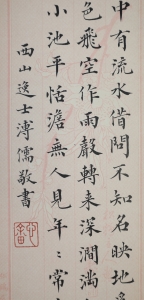 中有流水借問不知名映地
色飛空作雨聲轉來深澗滿
小池平恬澹無人見年〻常
西山逸士溥儒敬書